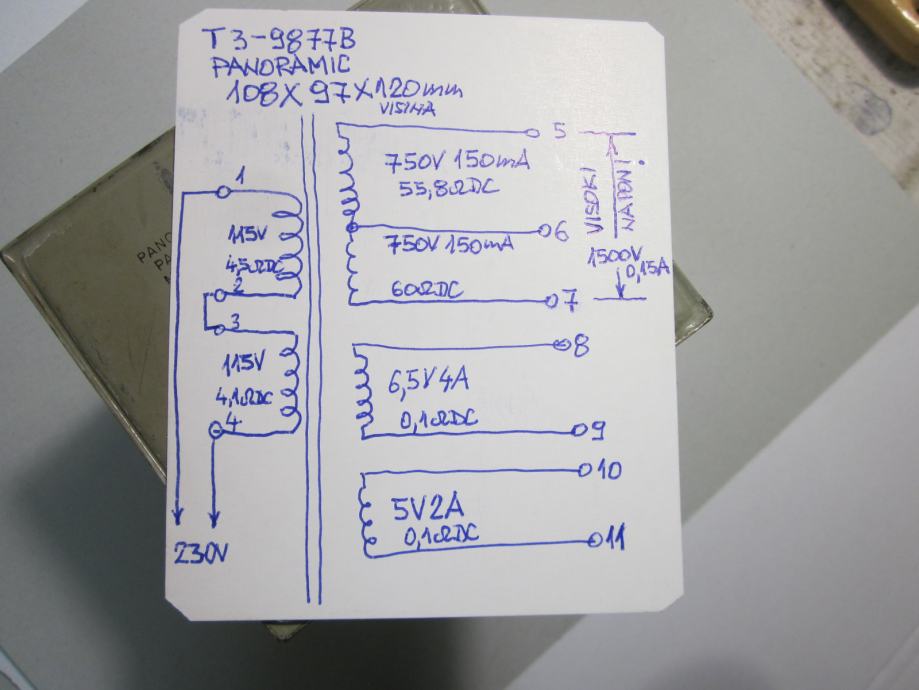 T3-9877B
PANORAMIC
108X97X120mm
VISINA
1
115V
4,5ΩDC
2
3
115V
4,1ΩDC
4
230V
5
750V 150mA
55,8ΩDC
6
750V 150mA
60ΩDC
7
VISOKI
NAPON!
1500V
0,15A
8
6,5V4A
0,1ΩDC
9
10
5V2A
0,1ΩDC
11
PANO